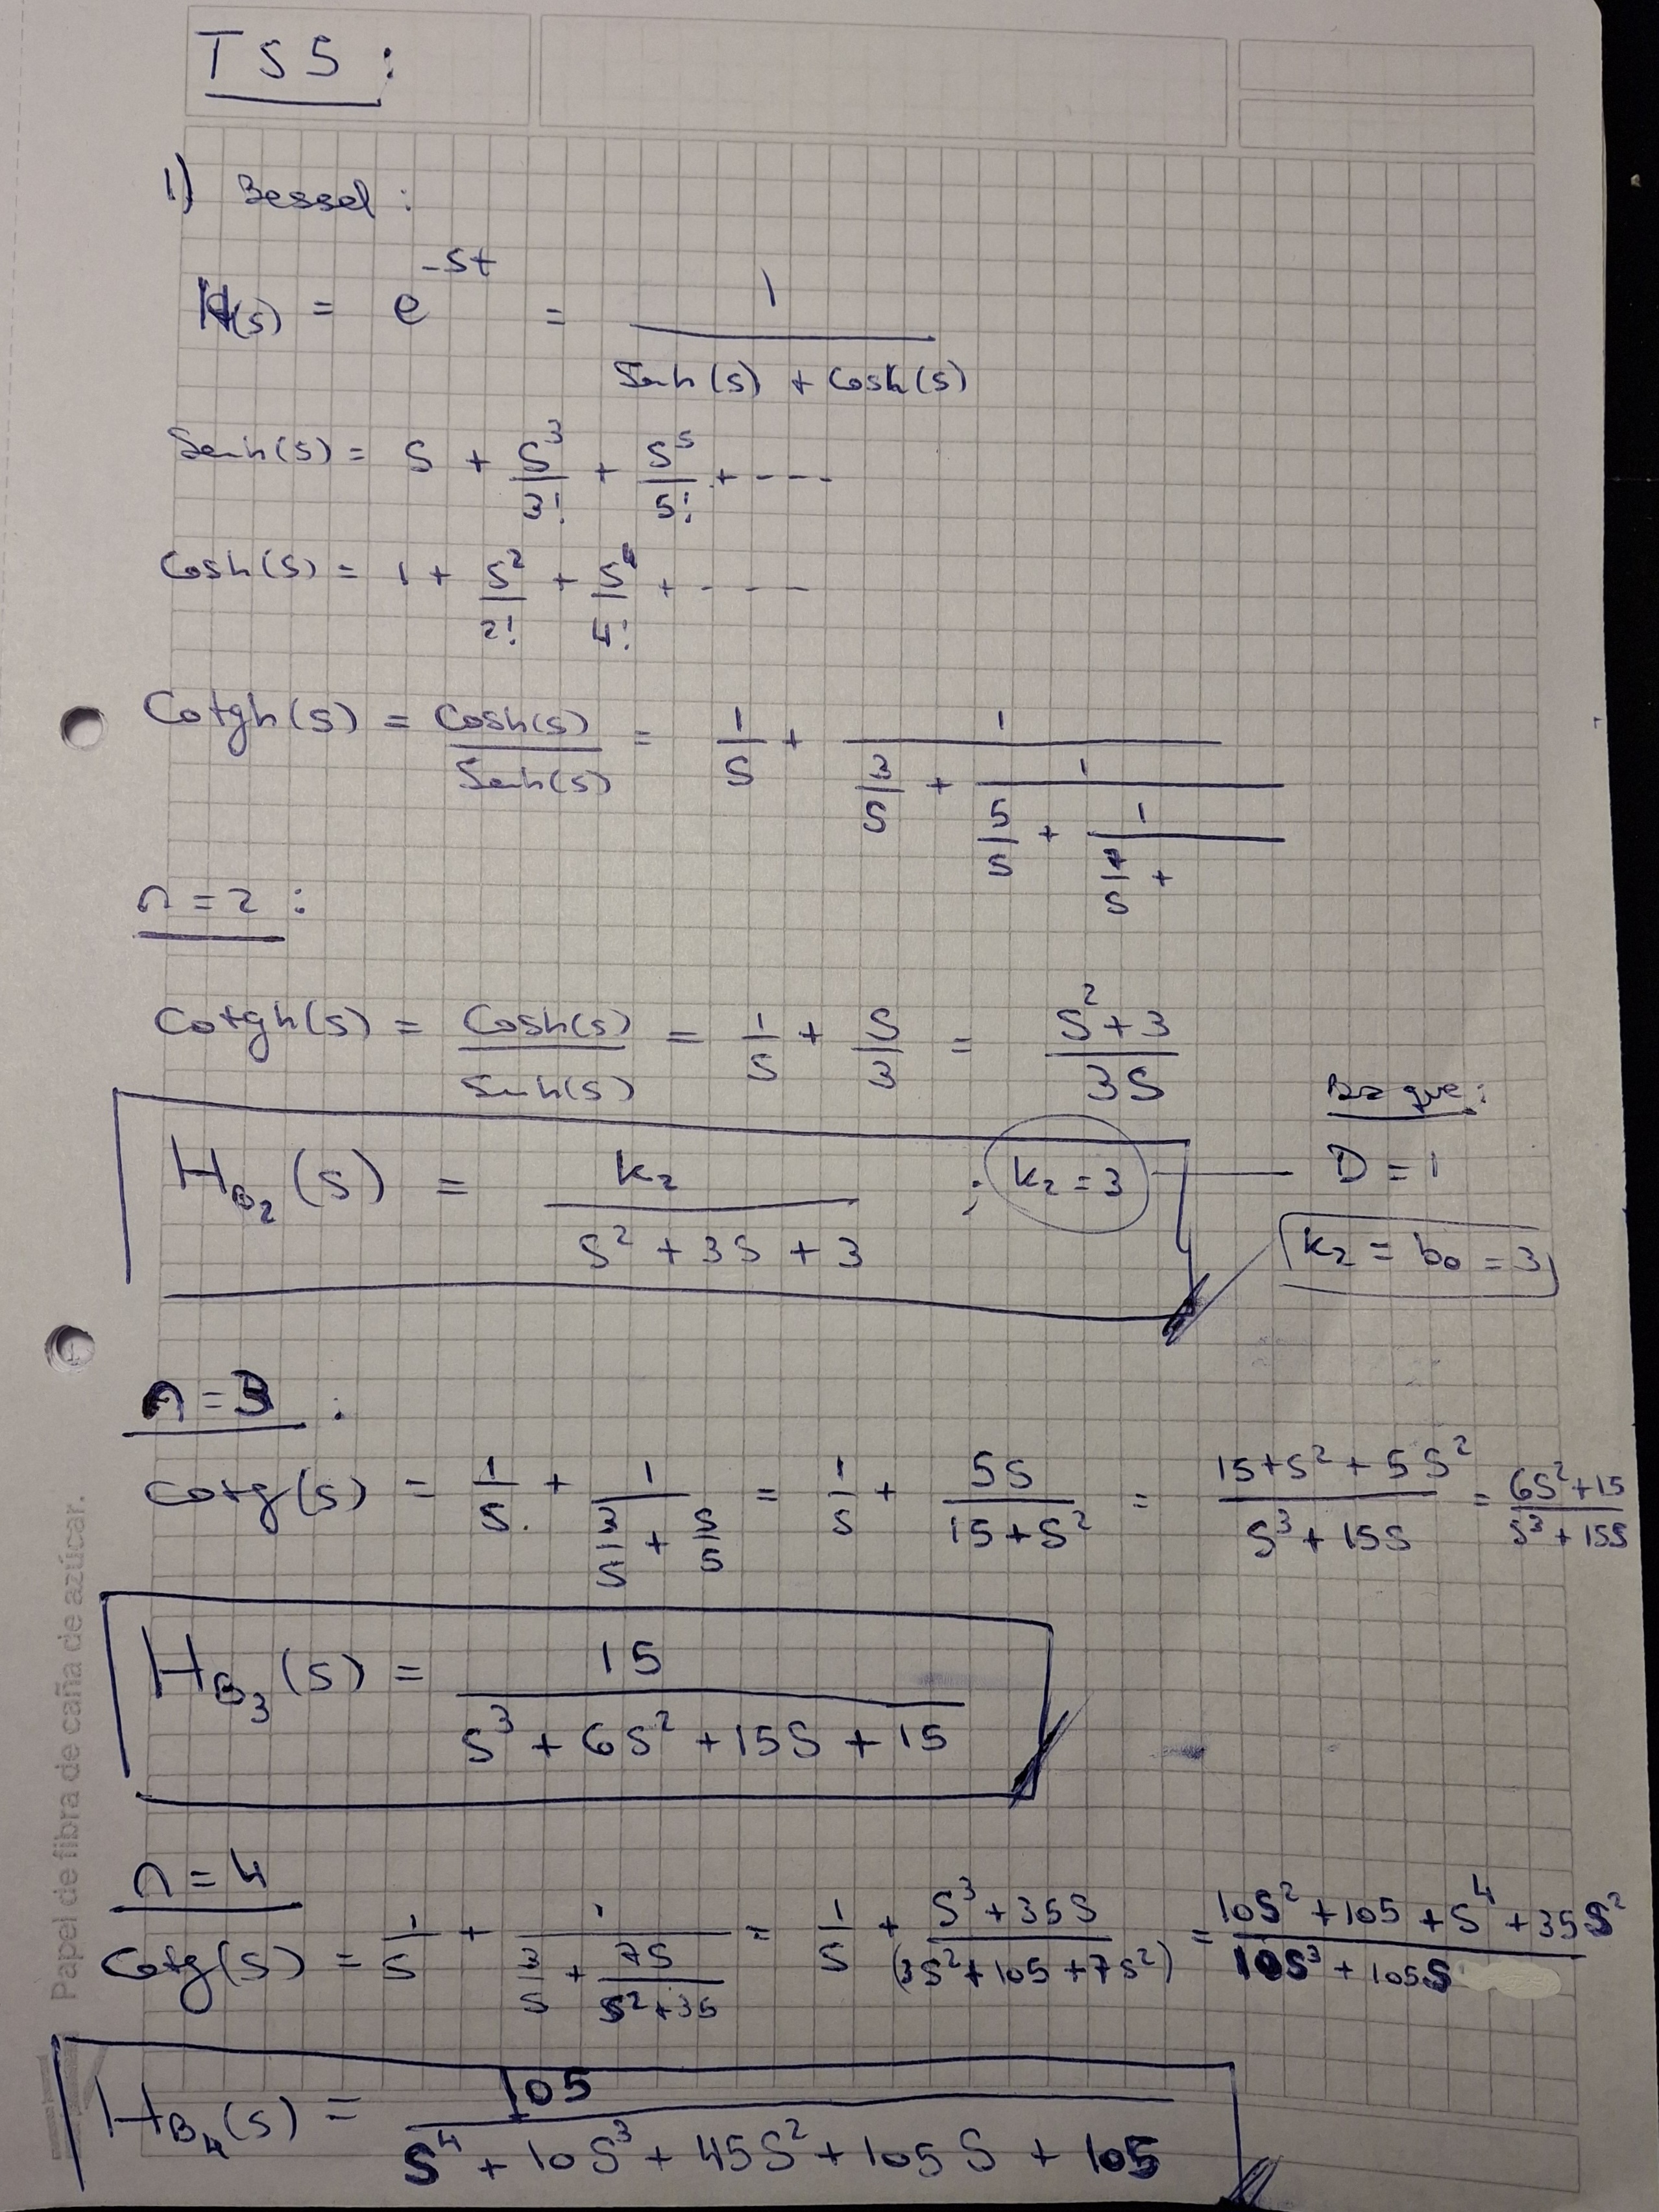 TS5:
1) Bessel:
H(s) = e^-st = 1 / (Senh(s) + Cosh(s))
Senh(s) = S + S^3/3! + S^5/5! + ----
Cosh(s) = 1 + S^2/2! + S^4/4! + - - - -
Cotgh(s) = Cosh(s)/Senh(s) = 1/S + 1/(3/S + 1/(5/S + 1/(7/S +
n=2:
Cotgh(s) = Cosh(s)/Senh(s) = 1/S + S/3 = (S^2+3)/3S
Da que:
H_B2(s) = k2 / (S^2 + 3S + 3) ; k2=3
D=1
k2 = b0 = 3
n=3:
Cotg(s) = 1/S + 1/(3/S + S/5) = 1/S + 5S/(15+S^2) = (15+S^2+5S^2)/(S^3+15S) = (6S^2+15)/(S^3+15S)
H_B3(s) = 15 / (S^3 + 6S^2 + 15S + 15)
n=4
Cotg(s) = 1/S + 1/(3/S + 7S/(S^2+35)) = 1/S + (S^3+35S)/(3S^2+105+7S^2) = (10S^2+105+S^4+35S^2)/(10S^3+105S)
H_B4(s) = 105 / (S^4 + 10S^3 + 45S^2 + 105S + 105)
Papel de fibra de caña de azúcar.